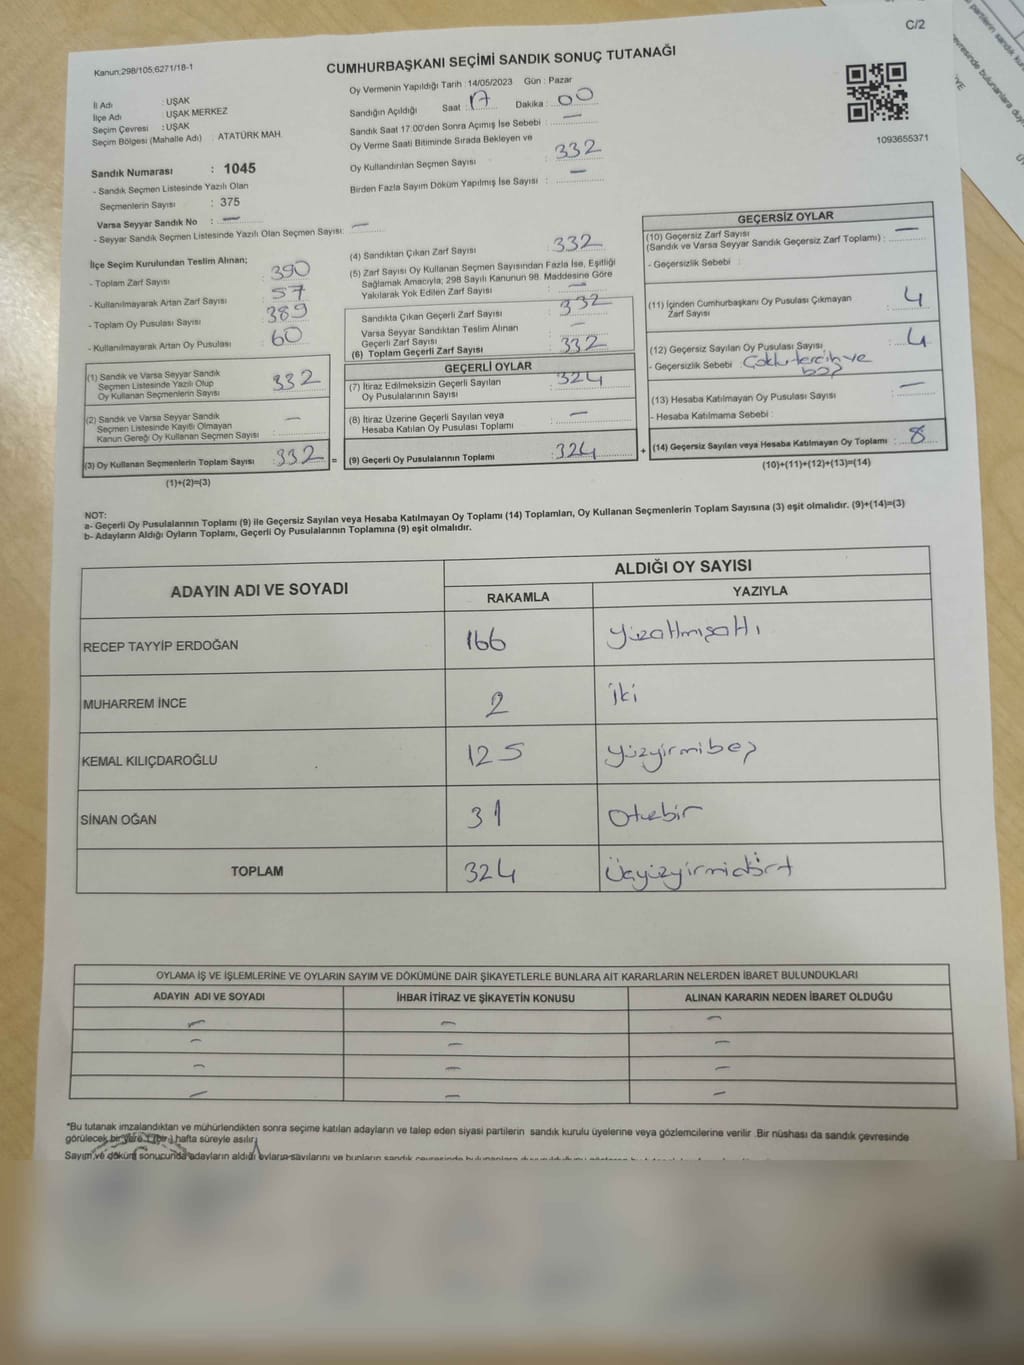 C/2
Kanun;298/105;6271/18-1
CUMHURBAŞKANI SEÇİMİ SANDIK SONUÇ TUTANAĞI
İl Adı : UŞAK
İlçe Adı : UŞAK MERKEZ
Seçim Çevresi : UŞAK
Seçim Bölgesi (Mahalle Adı) : ATATÜRK MAH.
Sandık Numarası : 1045
- Sandık Seçmen Listesinde Yazılı Olan
Seçmenlerin Sayısı : 375
Varsa Seyyar Sandık No : —
- Seyyar Sandık Seçmen Listesinde Yazılı Olan Seçmen Sayısı: —
Oy Vermenin Yapıldığı Tarih : 14/05/2023 Gün : Pazar
Sandığın Açıldığı Saat : 17 Dakika : 00
Sandık Saat 17:00'den Sonra Açımış İse Sebebi : —
Oy Verme Saati Bitiminde Sırada Bekleyen ve
Oy Kullandırılan Seçmen Sayısı : 332
Birden Fazla Sayım Döküm Yapılmış İse Sayısı : —
1093655371
İlçe Seçim Kurulundan Teslim Alınan;
- Toplam Zarf Sayısı : 390
- Kullanılmayarak Artan Zarf Sayısı : 57
- Toplam Oy Pusulası Sayısı : 389
- Kullanılmayarak Artan Oy Pusulası : 60
(1) Sandık ve Varsa Seyyar Sandık
Seçmen Listesinde Yazılı Olup
Oy Kullanan Seçmenlerin Sayısı : 332
(2) Sandık ve Varsa Seyyar Sandık
Seçmen Listesinde Kayıtlı Olmayan
Kanun Gereği Oy Kullanan Seçmen Sayısı : —
(3) Oy Kullanan Seçmenlerin Toplam Sayısı : 332 =
(1)+(2)=(3)
(4) Sandıktan Çıkan Zarf Sayısı : 332
(5) Zarf Sayısı Oy Kullanan Seçmen Sayısından Fazla İse, Eşitliği
Sağlamak Amacıyla; 298 Sayılı Kanunun 98. Maddesine Göre
Yakılarak Yok Edilen Zarf Sayısı : —
Sandıkta Çıkan Geçerli Zarf Sayısı : 332
Varsa Seyyar Sandıktan Teslim Alınan
Geçerli Zarf Sayısı : —
(6) Toplam Geçerli Zarf Sayısı : 332
GEÇERLİ OYLAR
(7) İtiraz Edilmeksizin Geçerli Sayılan
Oy Pusulalarının Sayısı : 324
(8) İtiraz Üzerine Geçerli Sayılan veya
Hesaba Katılan Oy Pusulaları Toplamı : —
(9) Geçerli Oy Pusulalarının Toplamı : 324 +
GEÇERSİZ OYLAR
(10) Geçersiz Zarf Sayısı
(Sandık ve Varsa Seyyar Sandık Geçersiz Zarf Toplamı) : —
- Geçersizlik Sebebi :
(11) İçinden Cumhurbaşkanı Oy Pusulası Çıkmayan
Zarf Sayısı : 4
(12) Geçersiz Sayılan Oy Pusulası Sayısı : 4
- Geçersizlik Sebebi : Çoklu tercih ve
boş
(13) Hesaba Katılmayan Oy Pusulası Sayısı : —
- Hesaba Katılmama Sebebi :
(14) Geçersiz Sayılan veya Hesaba Katılmayan Oy Toplamı : 8
(10)+(11)+(12)+(13)=(14)
NOT:
a- Geçerli Oy Pusulalarının Toplamı (9) ile Geçersiz Sayılan veya Hesaba Katılmayan Oy Toplamı (14) Toplamları, Oy Kullanan Seçmenlerin Toplam Sayısına (3) eşit olmalıdır. (9)+(14)=(3)
b- Adayların Aldığı Oyların Toplamı, Geçerli Oy Pusulalarının Toplamına (9) eşit olmalıdır.
ADAYIN ADI VE SOYADI
ALDIĞI OY SAYISI
RAKAMLA YAZIYLA
RECEP TAYYİP ERDOĞAN 166 Yüzaltmışaltı
MUHARREM İNCE 2 İki
KEMAL KILIÇDAROĞLU 125 Yüzyirmibeş
SİNAN OĞAN 31 Otuzbir
TOPLAM 324 Üçyüzyirmidört
OYLAMA İŞ VE İŞLEMLERİNE VE OYLARIN SAYIM VE DÖKÜMÜNE DAİR ŞİKAYETLERLE BUNLARA AİT KARARLARIN NELERDEN İBARET BULUNDUKLARI
ADAYIN ADI VE SOYADI İHBAR İTİRAZ VE ŞİKAYETİN KONUSU ALINAN KARARIN NEDEN İBARET OLDUĞU
— — —
— — —
— — —
— — —
*Bu tutanak imzalandıktan ve mühürlendikten sonra seçime katılan adayların ve talep eden siyasi partilerin sandık kurulu üyelerine veya gözlemcilerine verilir. Bir nüshası da sandık çevresinde
görülecek bir yere 1 (bir) hafta süreyle asılır.
Sayım ve döküm sonucunda adayların aldığı oyların sayılarını ve bunların sandık çevresinde